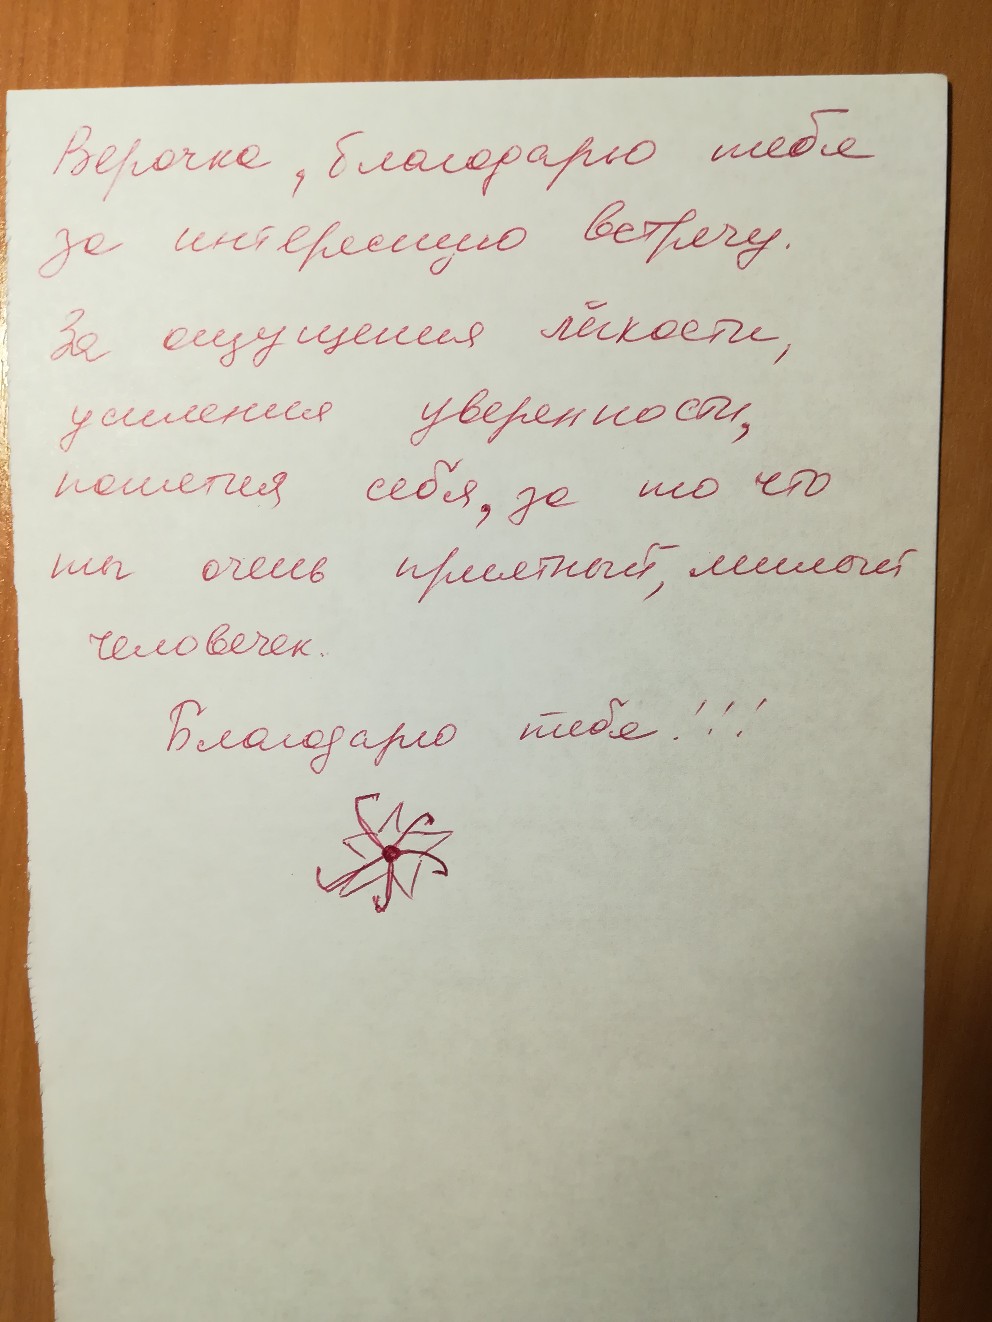 Верочка, благодарю тебя
за интересную встречу.
За ощущения лёгкости,
усиления уверенности,
понятия себя, за то что
ты очень приятный, милый
человечек.
Благодарю тебя!!!